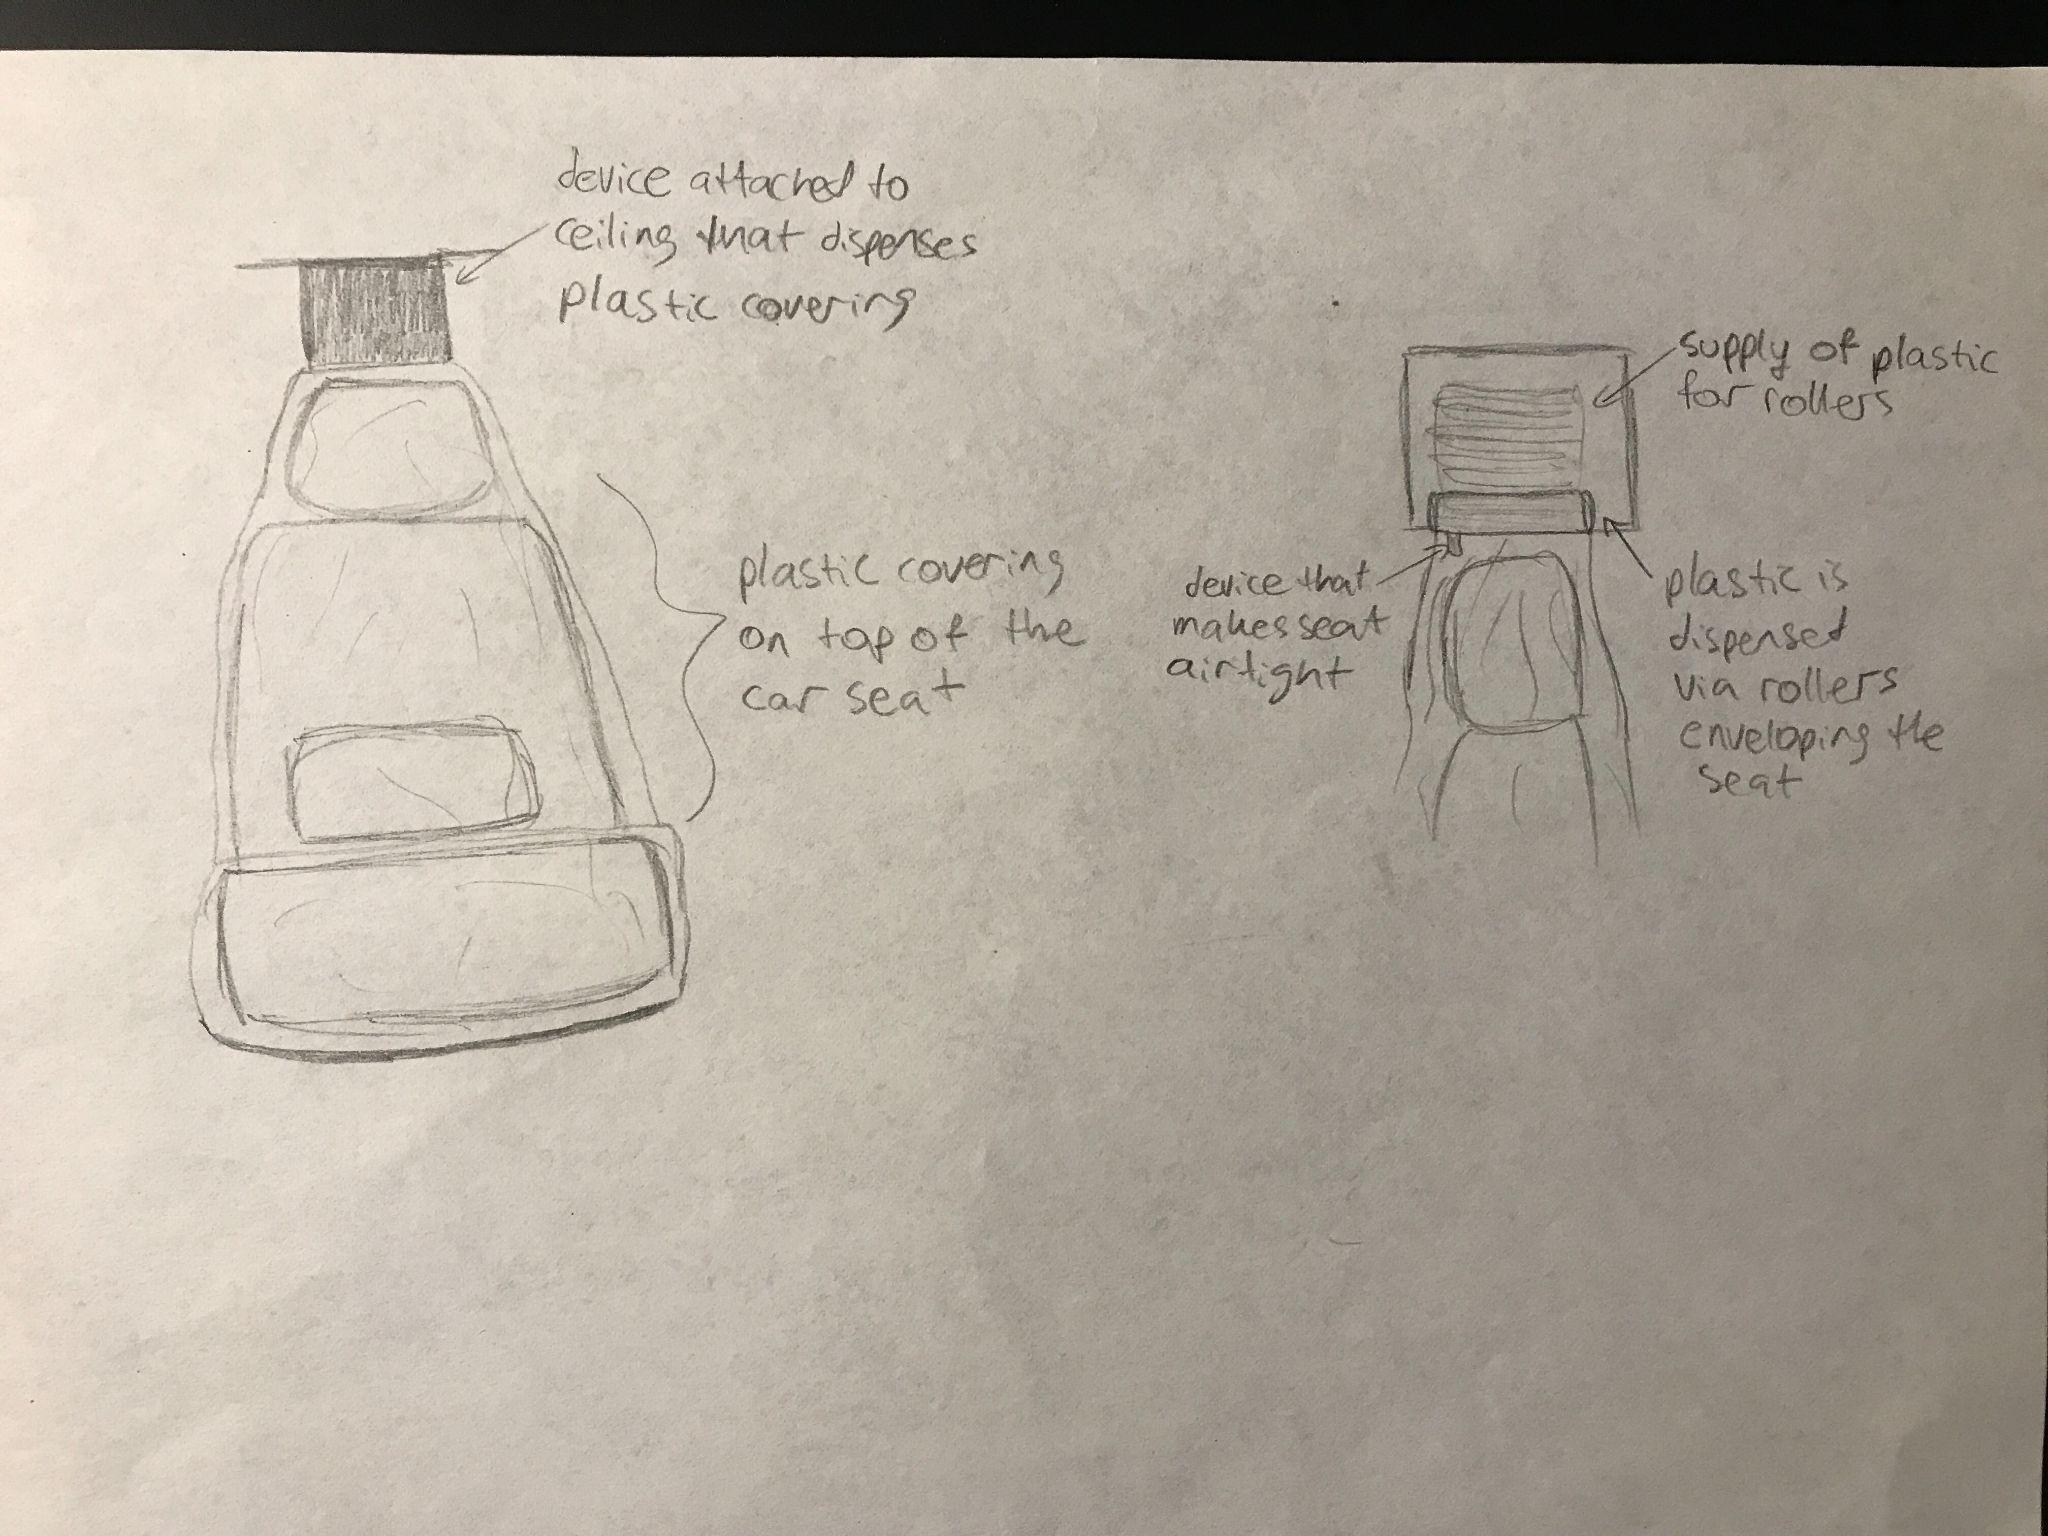 device attached to
ceiling that dispenses
plastic covering
plastic covering
on top of the
car seat
supply of plastic
for rollers
device that
makes seat
airtight
plastic is
dispensed
via rollers
enveloping the
seat